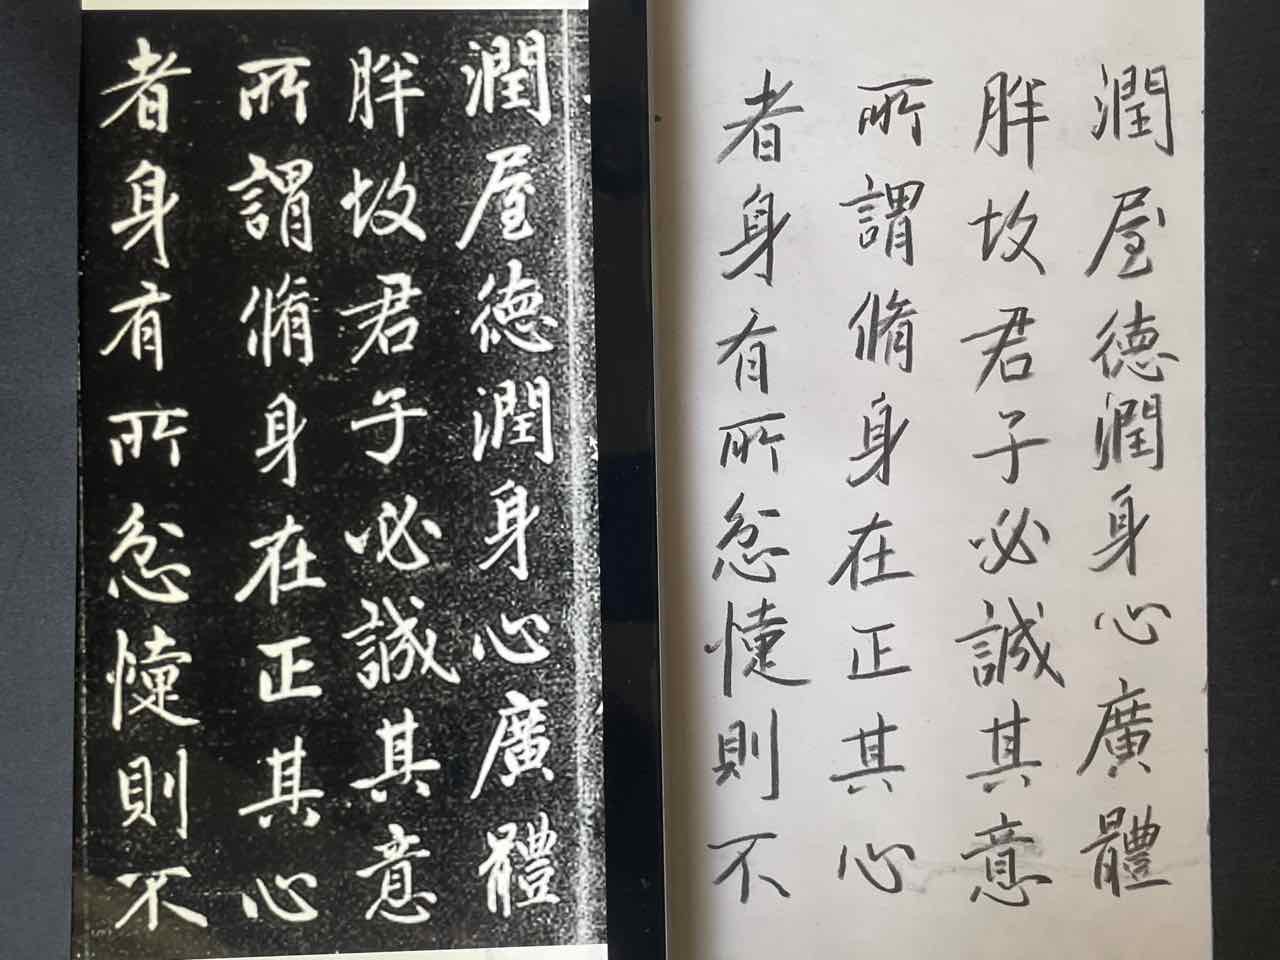 潤屋德潤身心廣體
胖故君子必誠其意
所謂脩身在正其心
者身有所忿懥則不
潤屋德潤身心廣體
胖故君子必誠其意
所謂脩身在正其心
者身有所忿懥則不